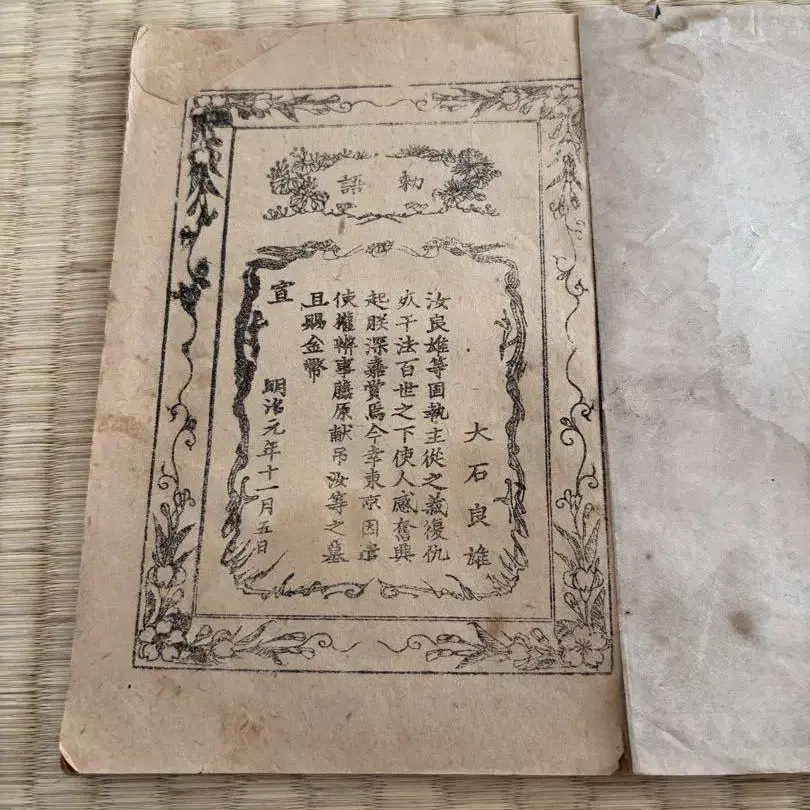 勅語
大石良雄
汝良雄等固執主從之義復仇
死于法百世之下使人感奮興
起朕深嘉賞焉今幸東京因遣
使權辨事藤原献弔汝等之墓
且賜金幣
宣
明治元年十一月五日